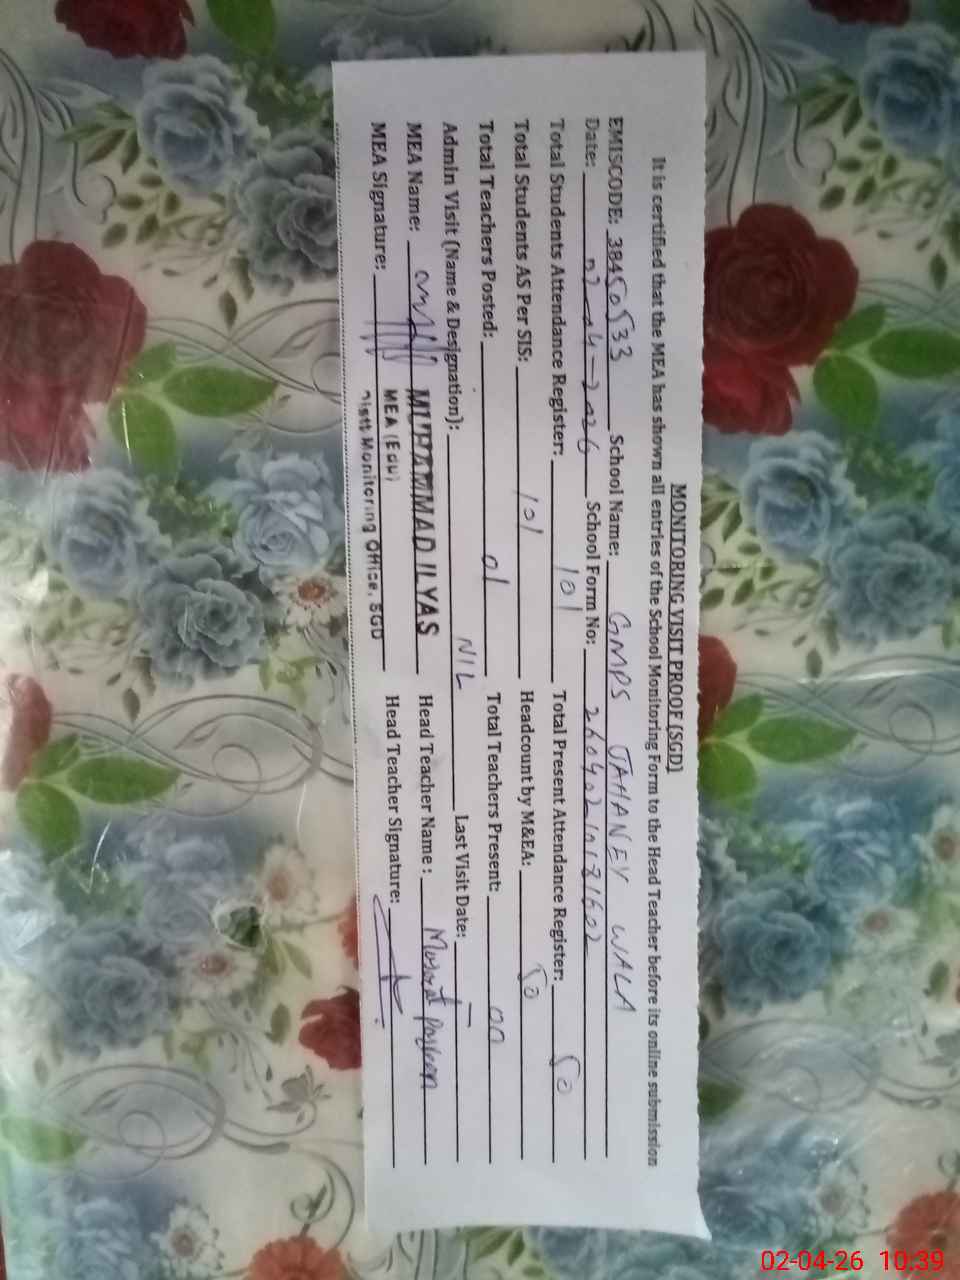 MONITORING VISIT PROOF (SGD)
It is certified that the MEA has shown all entries of the School Monitoring Form to the Head Teacher before its online submission
EMISCODE: 38450533 School Name: GMPS JAHANEY WALA
Date: 02-04-2026 School Form No: 26040210181602
Total Students Attendance Register: 101 Total Present Attendance Register: 50
Total Students AS Per SIS: 101 Headcount by M&EA: 50
Total Teachers Posted: 01 Total Teachers Present: 00
Admin Visit (Name & Designation): NIL Last Visit Date: -
MEA Name: MUHAMMAD ILYAS Head Teacher Name: Musarat Parveen
MEA (Edu)
MEA Signature: Head Teacher Signature:
Distt Monitoring Office, SGD
02-04-26 10:39